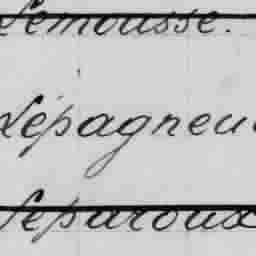 Lemousse.
Lépagneu
Leparoux